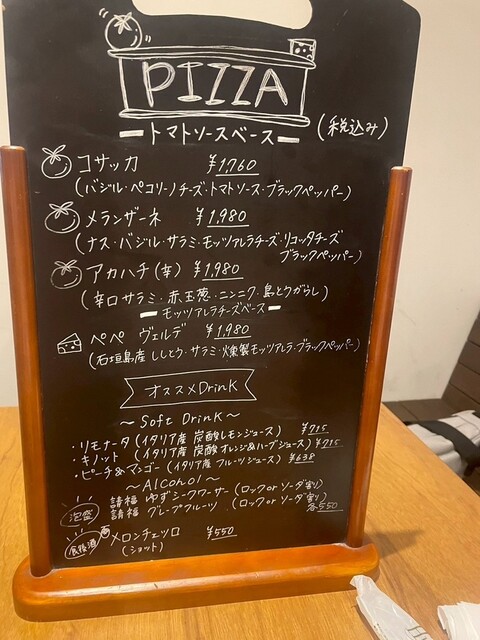 PIZZA
トマトソースベース (税込み)
コサッカ ¥1,760
(バジル・ペコリーノチーズ・トマトソース・ブラックペッパー)
メランザーネ ¥1,980
(ナス・バジル・サラミ・モッツァレラチーズ・リコッタチーズ
ブラックペッパー)
アカハチ(辛) ¥1,980
(辛口サラミ・赤玉葱・ニンニク・島とうがらし)
モッツアレラチーズベース
ペペ ヴェルデ ¥1,980
(石垣島産 ししとう・サラミ・燻製モッツアレラ・ブラックペッパー)
オススメDrink
〜Soft Drink〜
・リモナータ (イタリア産 炭酸レモンジュース) ¥715
・キノット (イタリア産 炭酸オレンジ&ハーブジュース) ¥715
・ピーチ&マンゴー (イタリア産 フルーツジュース) ¥638
〜Alcohol〜
泡盛 請福 ゆずシークワーサー (ロックor ソーダ割り)
請福 グレープフルーツ (ロックor ソーダ割り) 各550
食後酒 メロンチェッロ ¥550
(ショット)